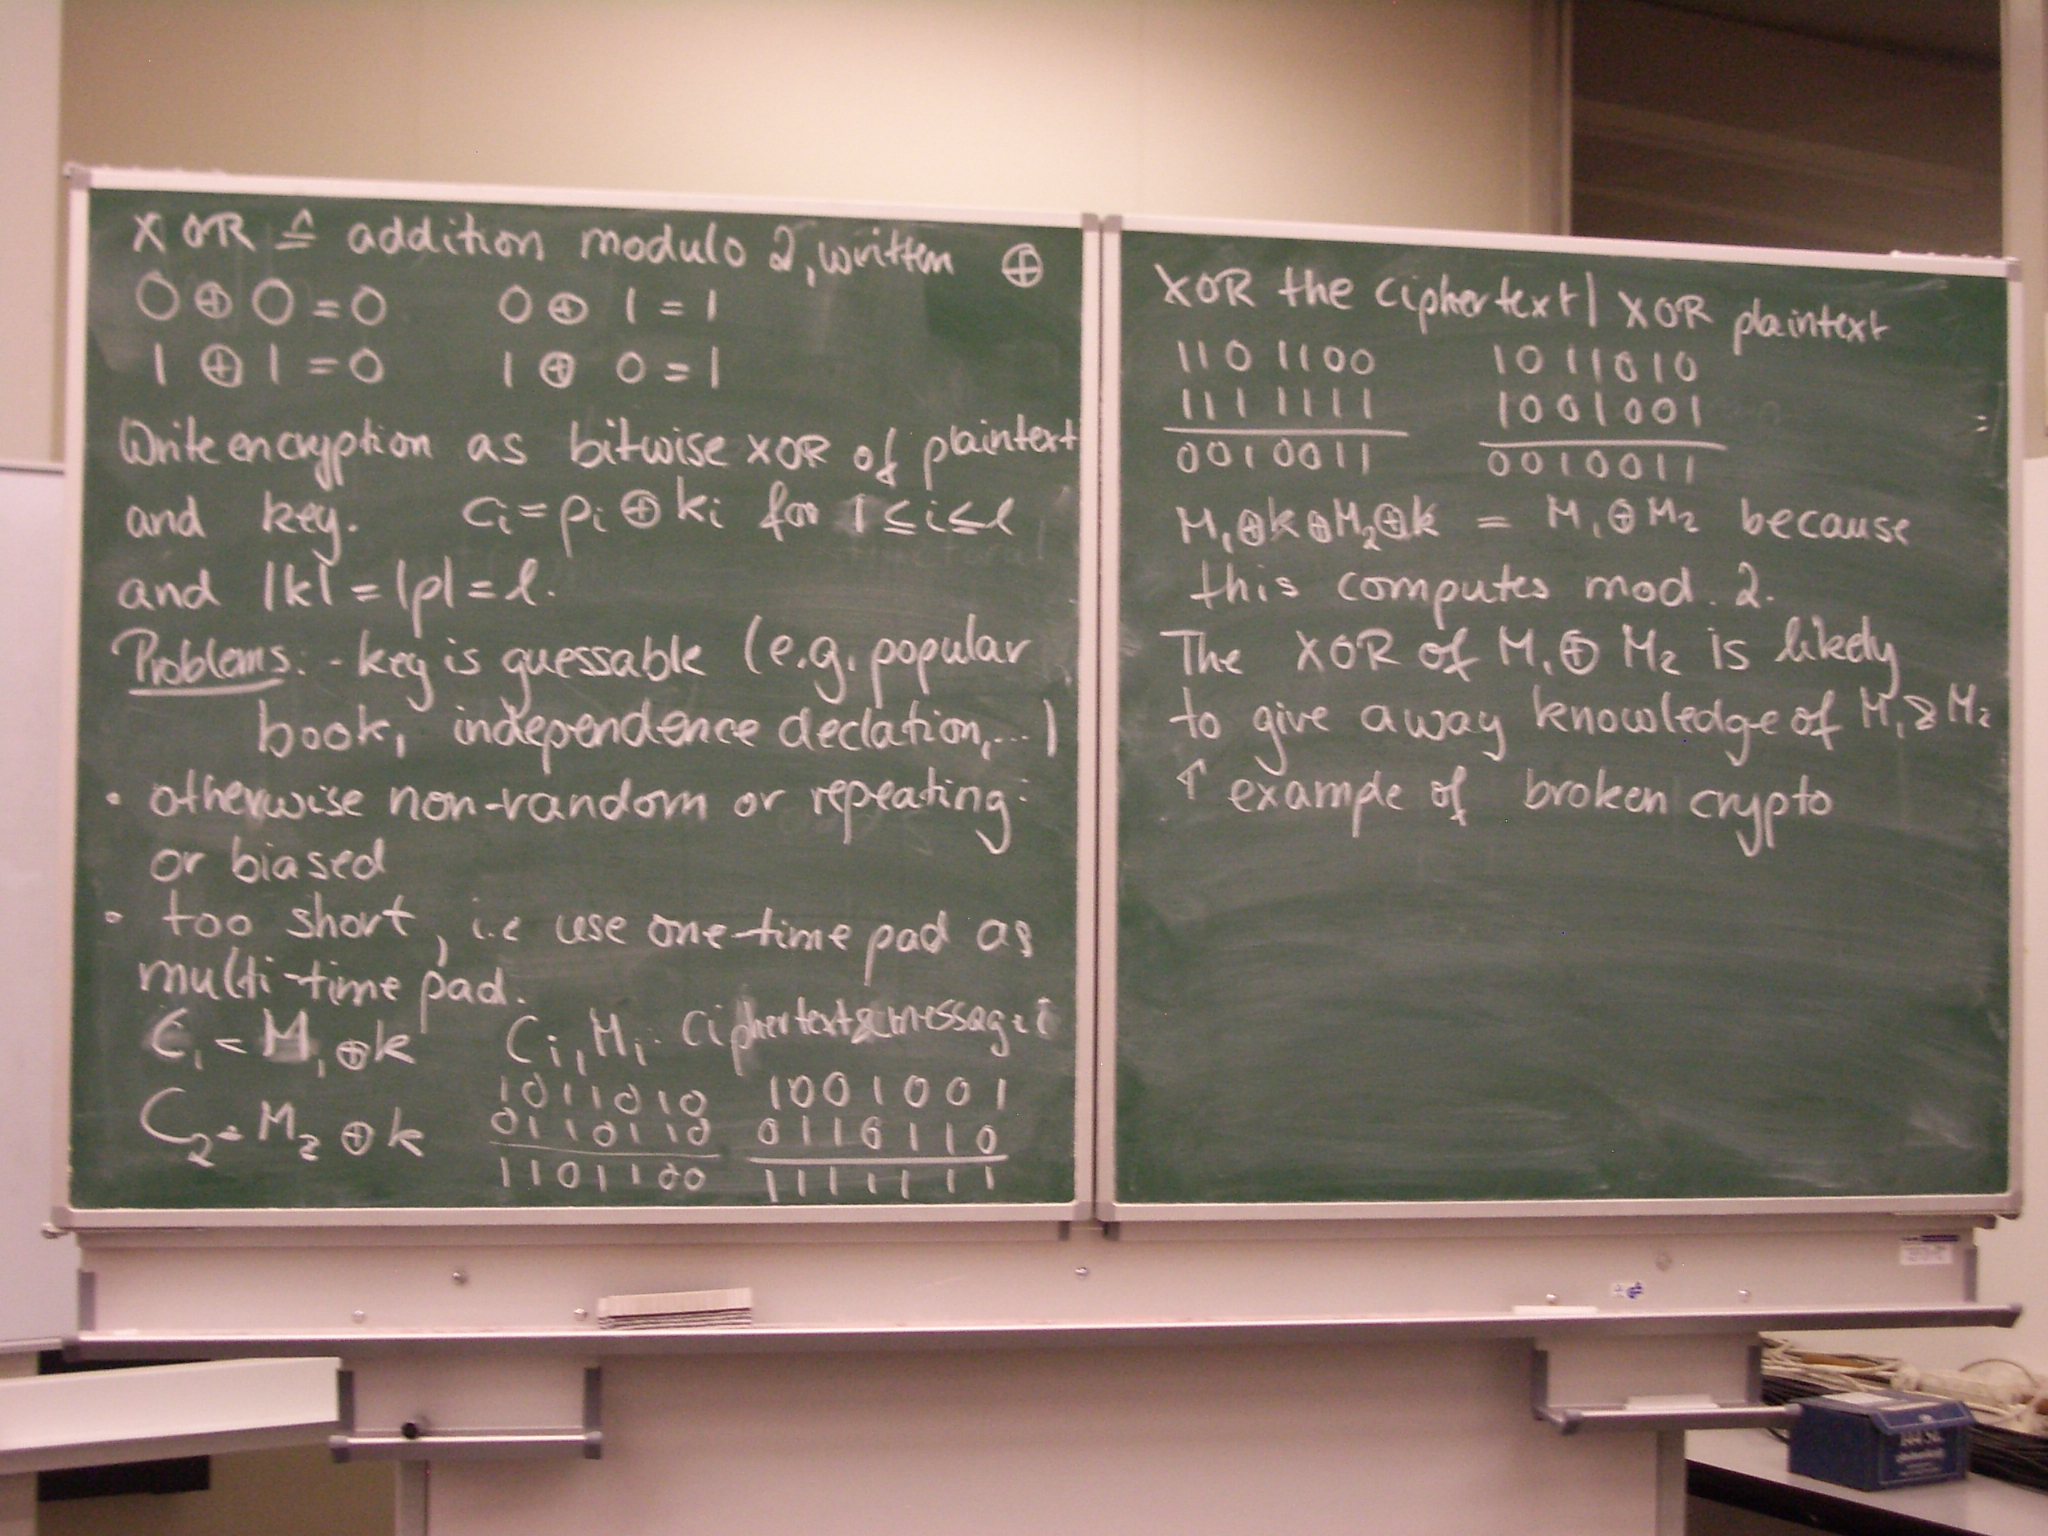 XOR ≙ addition modulo 2, written ⊕
0 ⊕ 0 = 0 0 ⊕ 1 = 1
1 ⊕ 1 = 0 1 ⊕ 0 = 1
Write encryption as bitwise XOR of plaintext
and key. ci = pi ⊕ ki for 1 ≤ i ≤ l
and |k| = |p| = l.
Problems: - key is guessable (e.g. popular
book, independence declation,...)
• otherwise non-random or repeating
or biased
• too short, i.e use one-time pad as
multi-time pad.
C1 = M1 ⊕ k Ci, Mi: ciphertext & message i
C2 = M2 ⊕ k
1011010 1001001
0110110 0110110
1101100 1111111
XOR the ciphertext | XOR plaintext
1101100 1011010
1111111 1001001
0010011 0010011
M1⊕k⊕M2⊕k = M1⊕M2 because
this computes mod. 2.
The XOR of M1 ⊕ M2 is likely
to give away knowledge of M1 & M2
↑ example of broken crypto